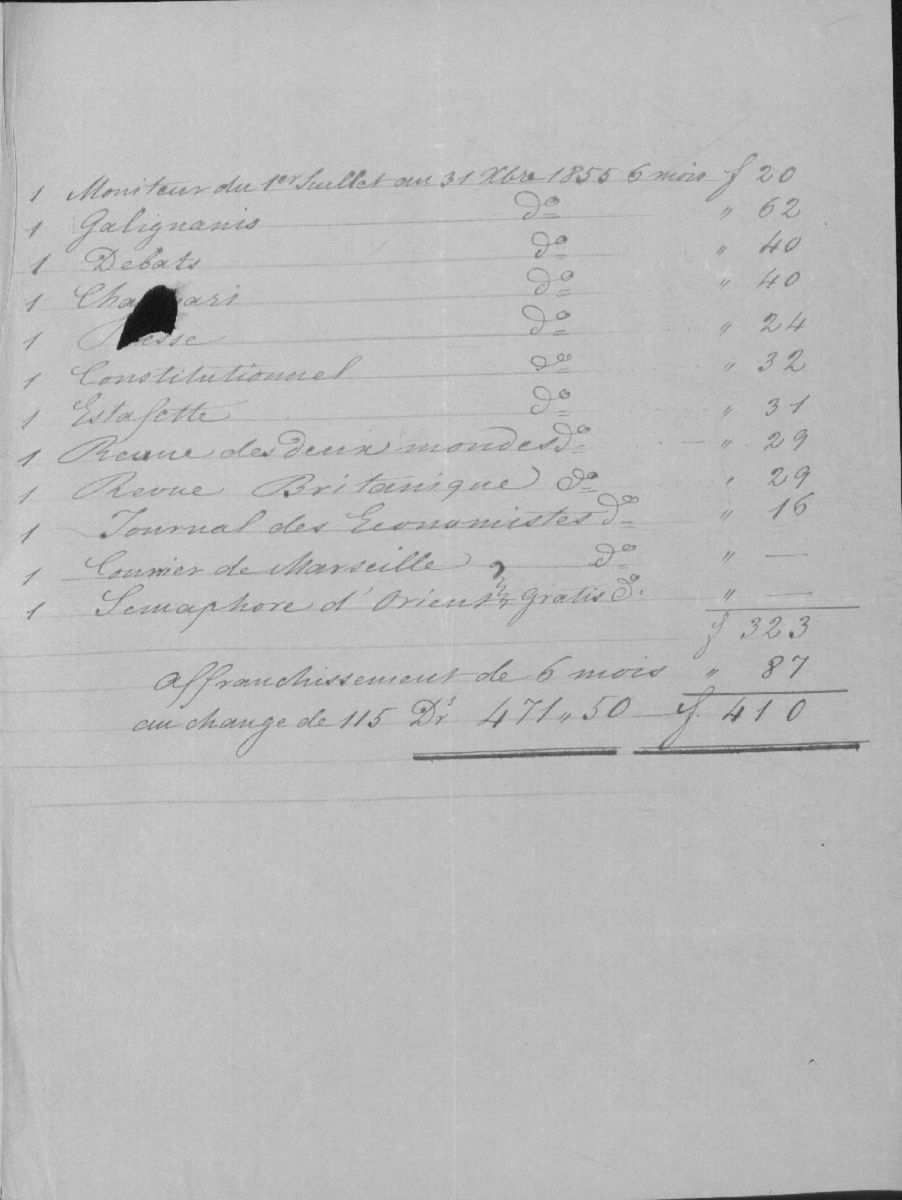 1 Moniteur du 1er Juillet au 31 Xbre 1855 6 mois f 20
1 Galignanis do " 62
1 Debats do " 40
1 Cha ari do " 40
1 esse do " 24
1 Constitutionnel do " 32
1 Estafette do " 31
1 Revue des deux mondes do — " 29
1 Revue Britanique do " 29
1 Journal des Economistes do " 16
1 Courrier de Marseille do " —
1 Semaphore d'Orient gratis do " —
f 323
affranchissement de 6 mois " 87
au change de 115 Dr 471 " 50 f. 410